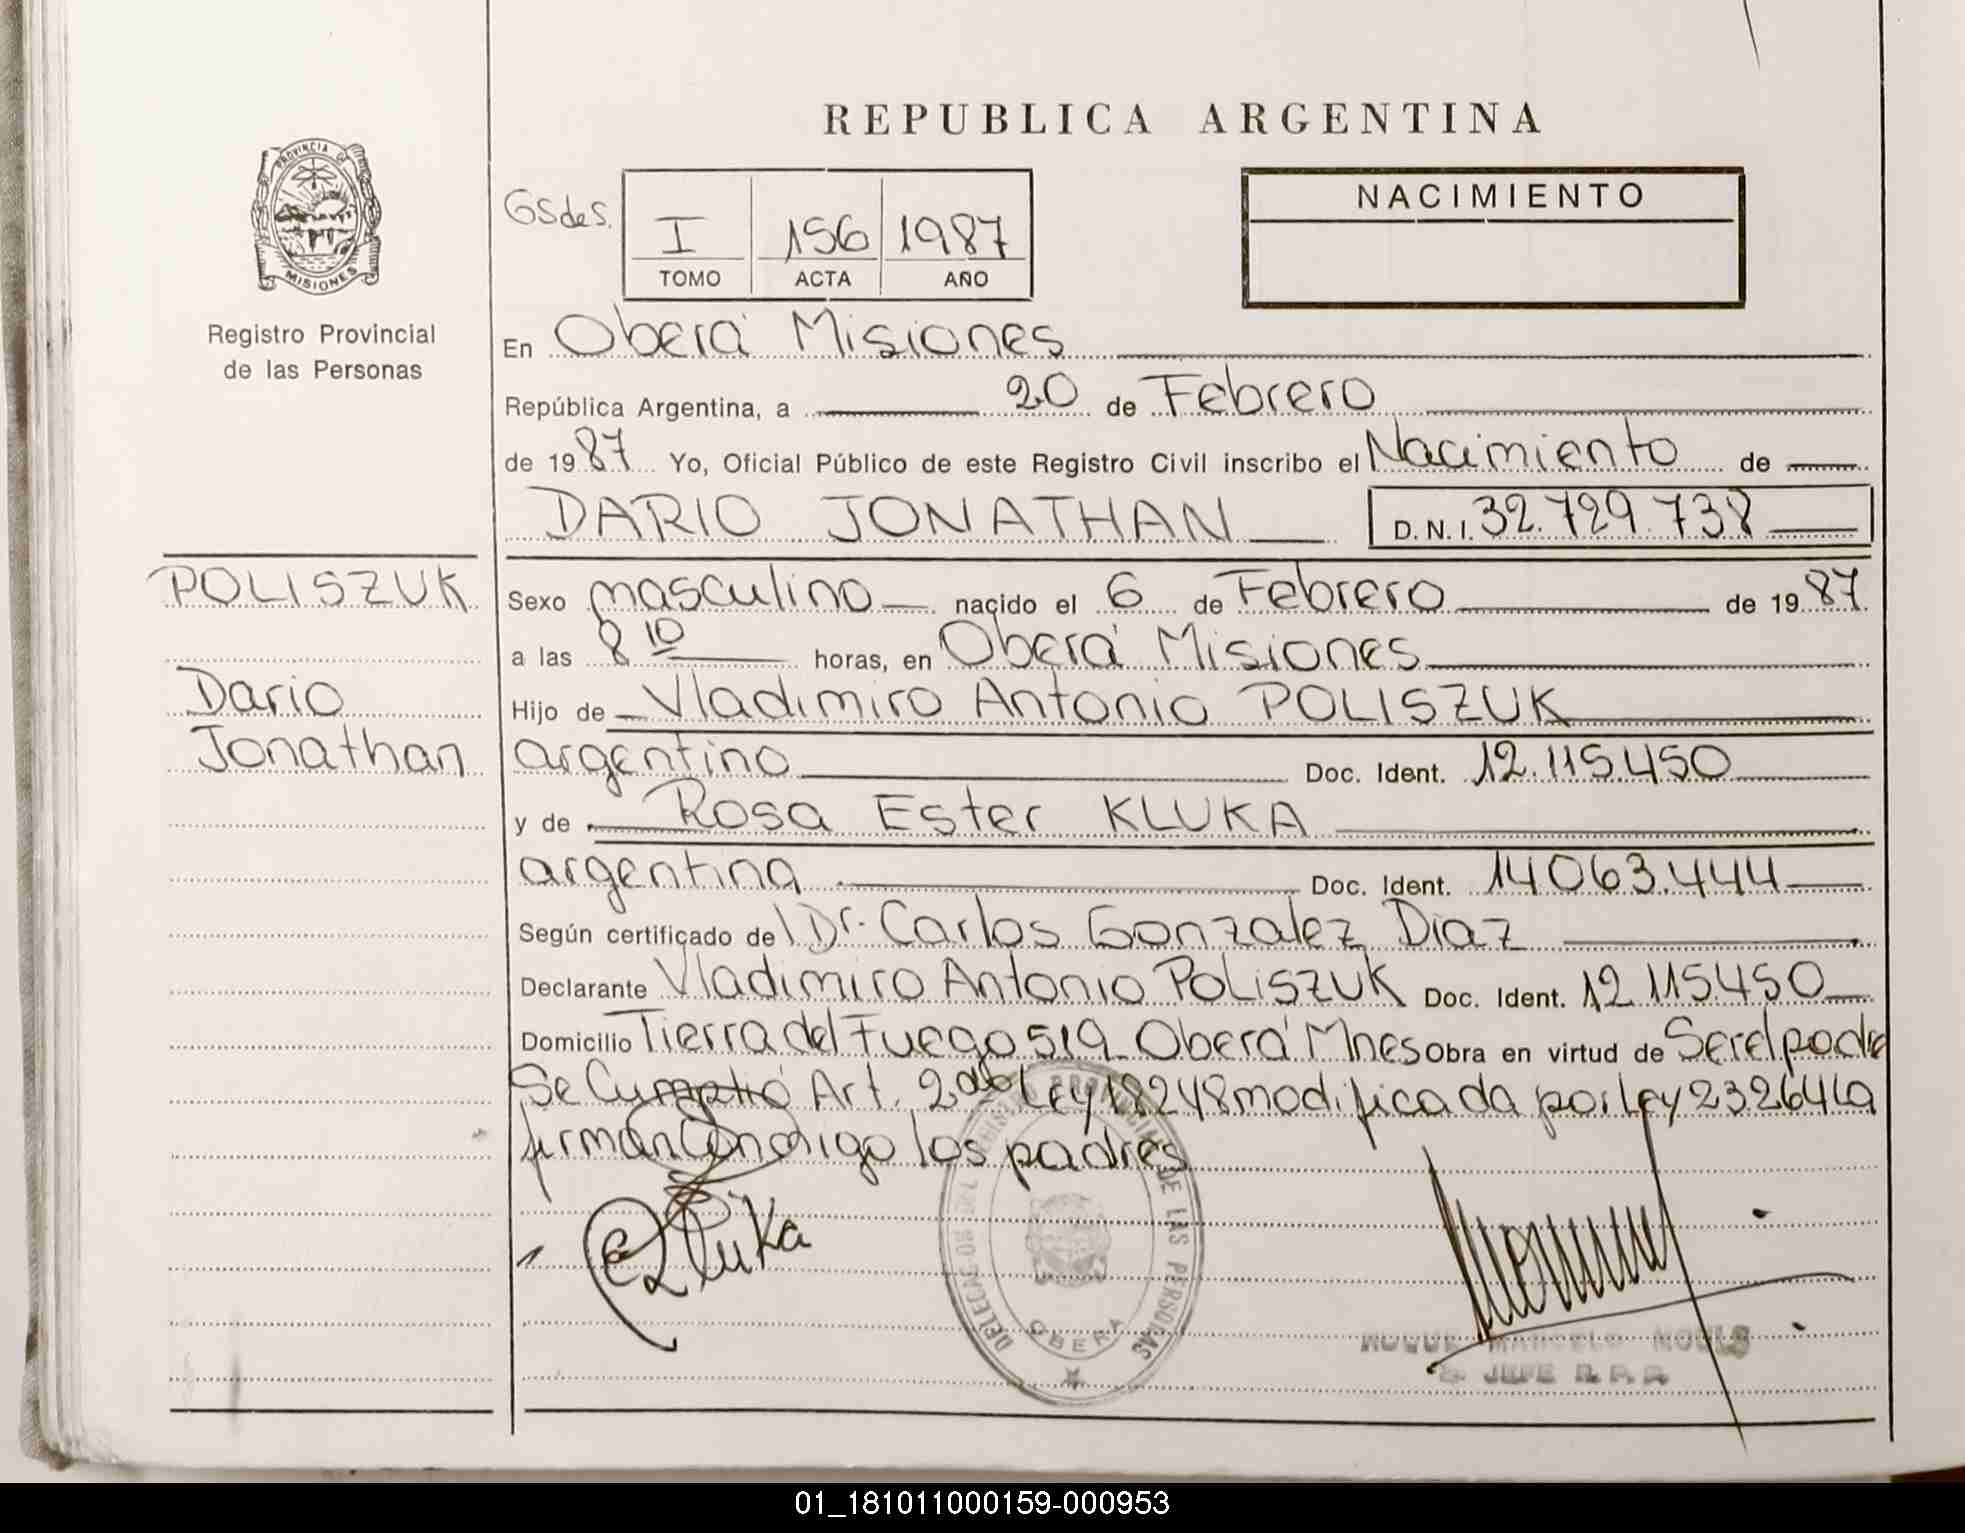 REPUBLICA ARGENTINA
PROVINCIA DE MISIONES
Registro Provincial
de las Personas
GSdeS.
I 156 1987
TOMO ACTA AÑO
NACIMIENTO
En Oberá Misiones
República Argentina, a 20 de Febrero
de 1987 Yo, Oficial Público de este Registro Civil inscribo el Nacimiento de
DARIO JONATHAN D.N.I. 32.729.738
POLISZUK
Dario
Jonathan
Sexo masculino nacido el 6 de Febrero de 1987
a las 8 10 horas, en Oberá Misiones
Hijo de Vladimiro Antonio POLISZUK
argentino Doc. Ident. 12.115.450
y de Rosa Ester KLUKA
argentina Doc. Ident. 14063.444
Según certificado del Dr. Carlos Gonzalez Diaz
Declarante Vladimiro Antonio POLISZUK Doc. Ident. 12.115.450
Domicilio Tierra del Fuego 519 Oberá Mnes Obra en virtud de Ser el padre
Se Cumplió Art. 2 de Ley 18248 modificada por Ley 23264 la
firman Conmigo los padres
Kluka
DELEGACION DEL REGISTRO PROVINCIAL DE LAS PERSONAS
OBERA
MARCELO
JEFE R. P. P.
01_181011000159-000953